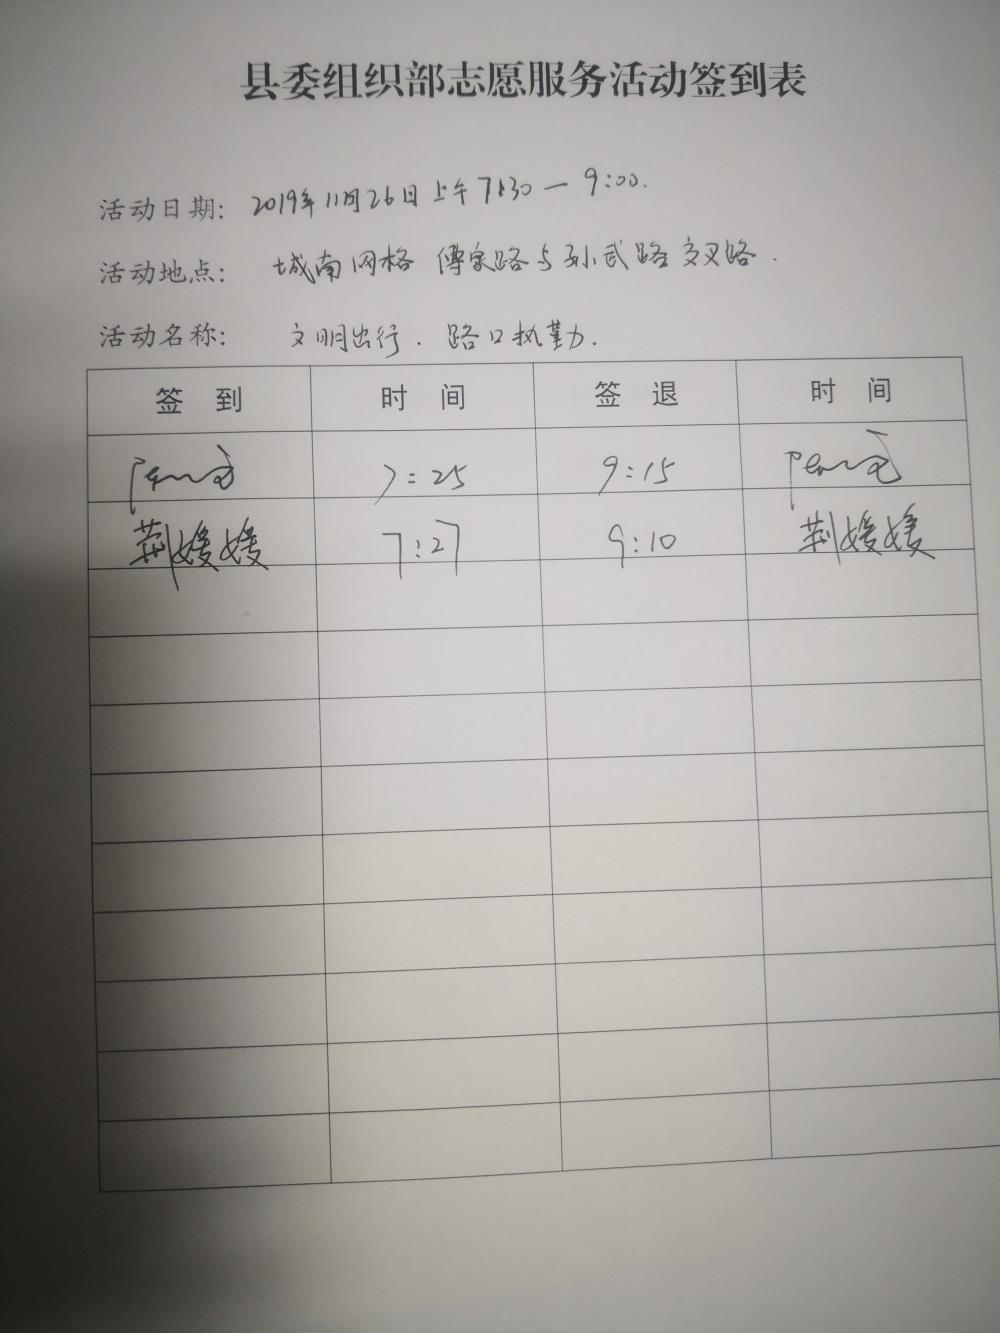 县委组织部志愿服务活动签到表
活动日期: 2019年11月26日上午7:30—9:00.
活动地点: 城南网格 傅家路与孙武路交叉路.
活动名称: 文明出行. 路口执勤.
签 到 时 间 签 退 时 间
7:25 9:15
荆媛媛 7:27 9:10 荆媛媛